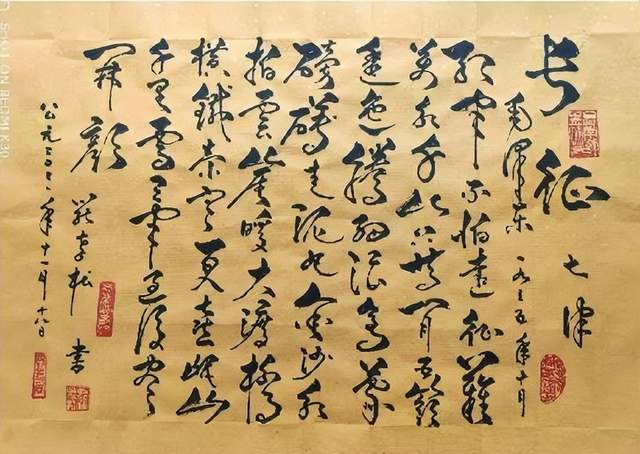 SHOT ON REDMI K30
长征 七律
毛泽东 一九三五年十月
红军不怕远征難
万水千山只等闲五嶺
逶迤腾细浪乌蒙
磅礴走泥丸金沙水
拍雲崖暖大渡桥
横鐵索寒更喜岷山
千里雪三军过後尽
開颜
公元二〇〇年十一月十日
松 书